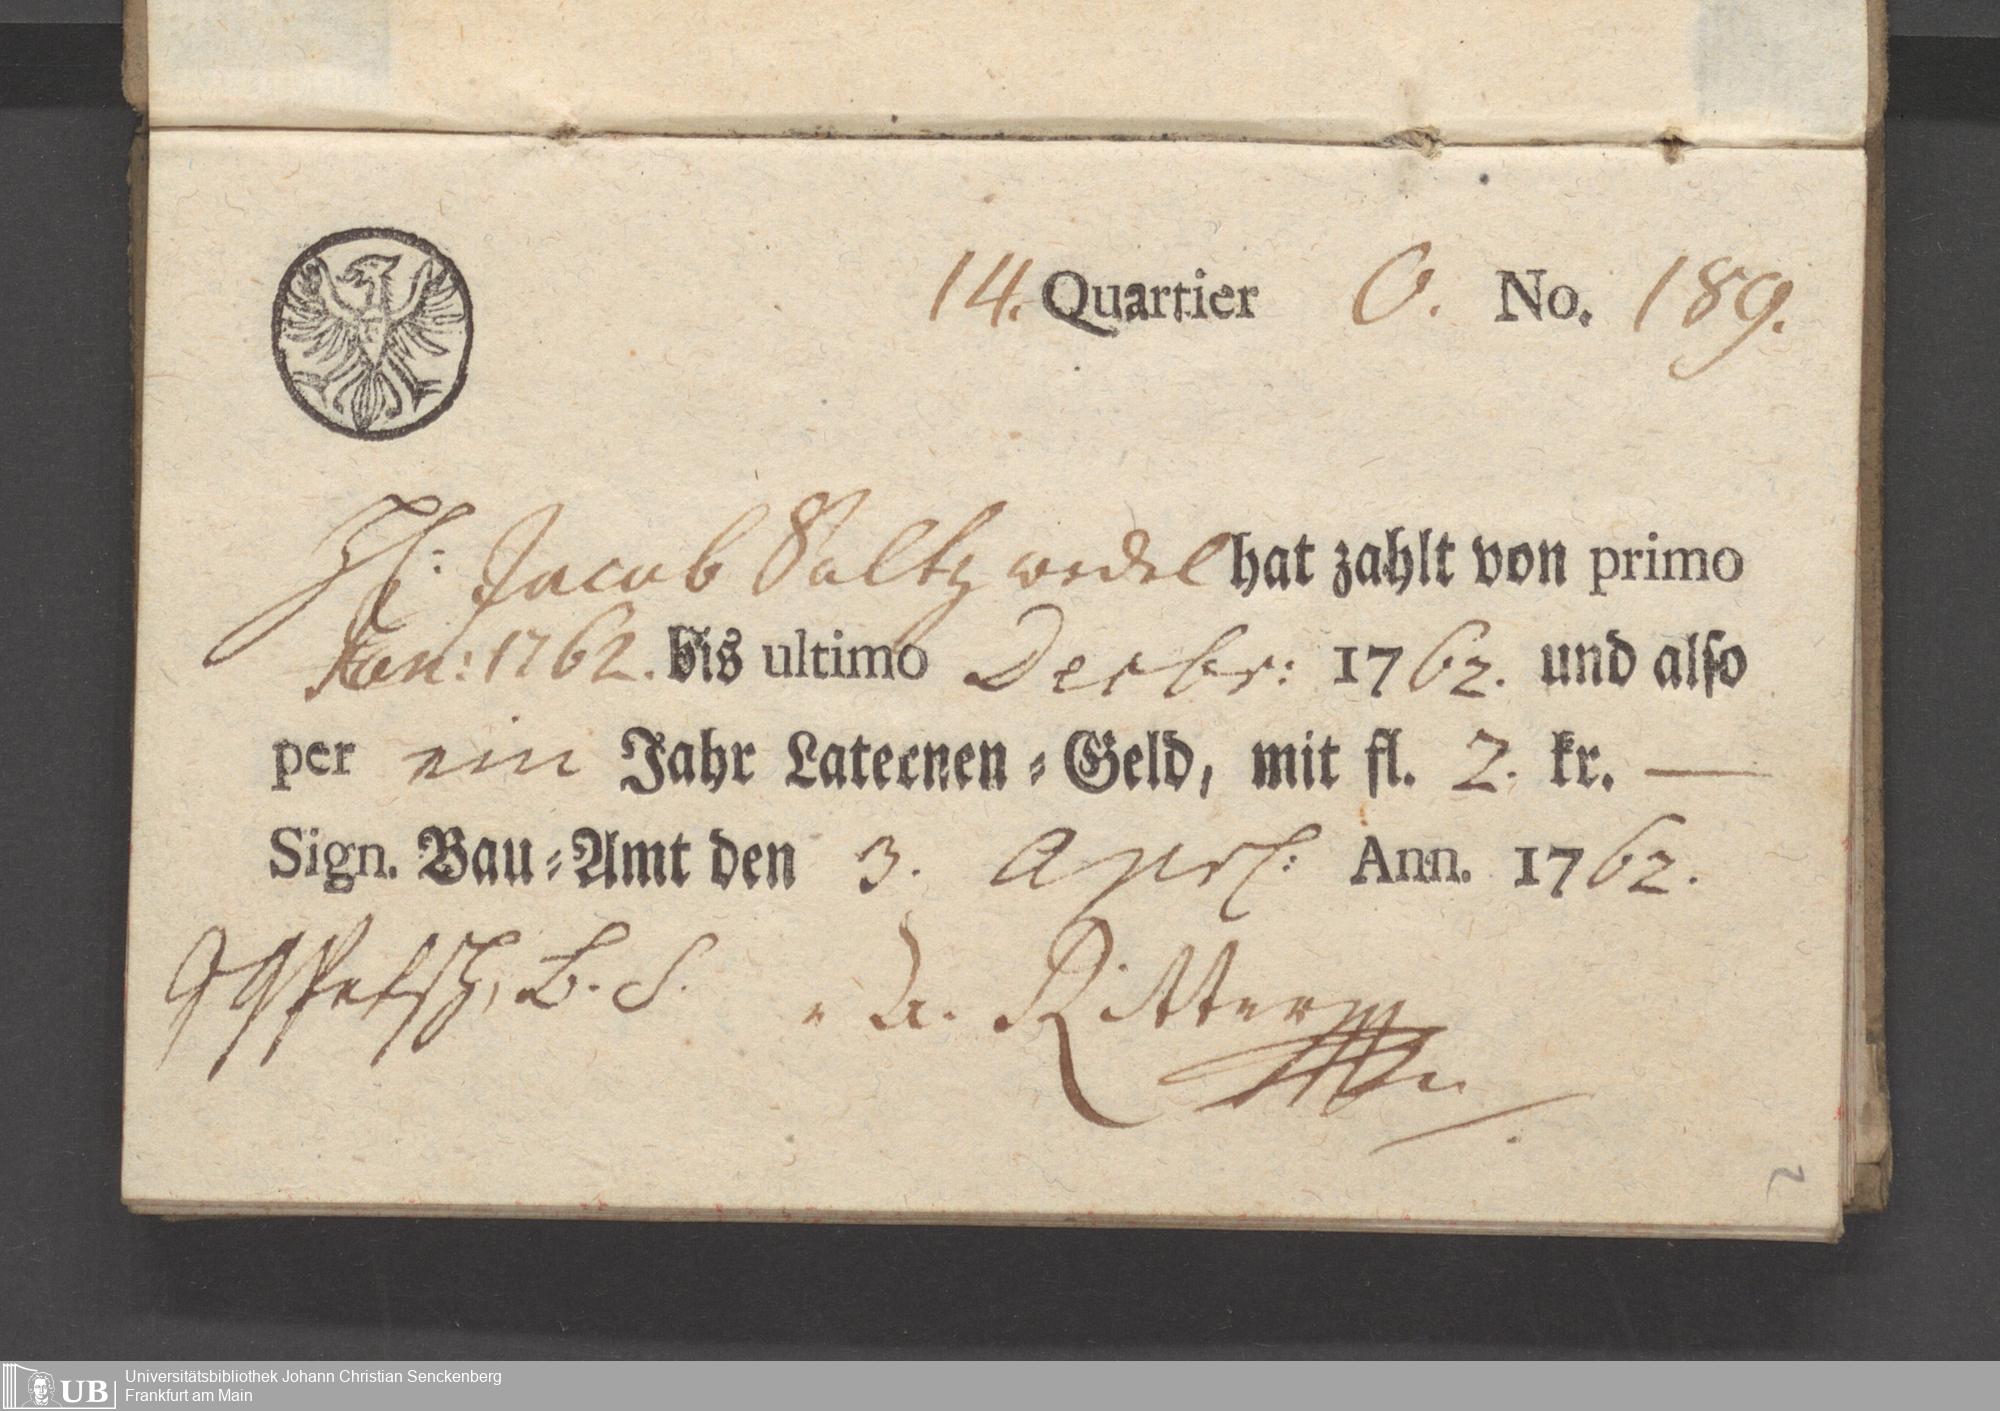 14. Quartier O. No. 189.
H: Jacob Saltzwedel hat zahlt von primo
Jan: 1762. bis ultimo Decbr: 1762. und also
per ein Jahr Laternen-Geld, mit fl. 2. kr. —
Sign. Bau-Amt den 3. Aprl: Ann. 1762.
B. S. Ritter
2
UB
Universitätsbibliothek Johann Christian Senckenberg
Frankfurt am Main